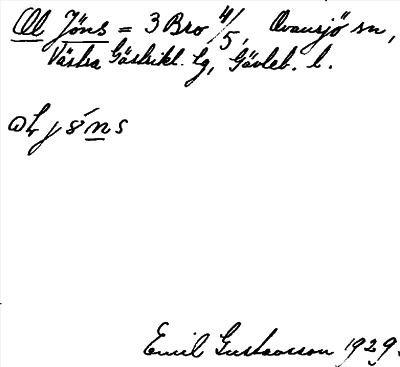 Ol Jöns = 3 Bro 4/5, Ovansjö sn,
Västra Gästrikl. tg, Gävleb. l.
jö́ns
Emil Gustavsson 1929.